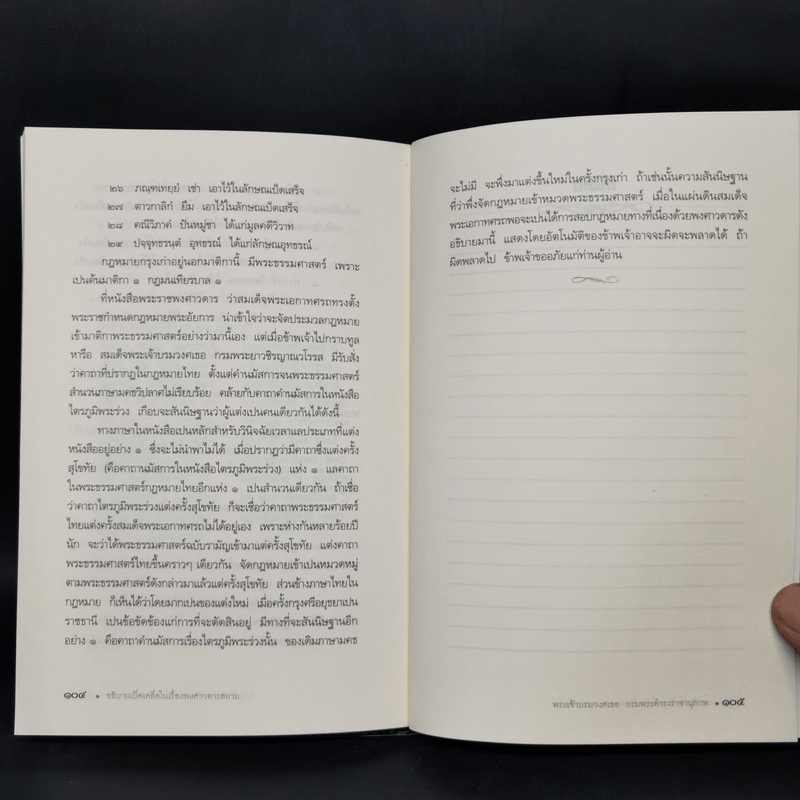 ๒๖ ภณฺฑเทยฺยํ เช่า เอาไว้ในลักษณเบ็ดเสร็จ
๒๗ ตาวกาลิกํ ยืม เอาไว้ในลักษณเบ็ดเสร็จ
๒๘ คณีวิภาคํ ปันหมู่ชา ได้แก่มูลคดีวิวาท
๒๙ ปจฺจุทธรนฺตํ อุทธรณ์ ได้แก่ลักษณอุทธรณ์
กฎหมายกรุงเก่าอยู่นอกมาติกานี้ มีพระธรรมศาสตร์ เพราะ
เปนต้นมาติกา ๑ กฎมนเทียรบาล ๑
ที่หนังสือพระราชพงศาวดาร ว่าสมเด็จพระเอกาทศรถทรงตั้ง
พระราชกำหนดกฎหมายพระอัยการ น่าเข้าใจว่าจะจัดประมวลกฎหมาย
เข้ามาติกาพระธรรมศาสตร์อย่างว่ามานี้เอง แต่เมื่อข้าพเจ้าไปกราบทูล
หารือ สมเด็จพระเจ้าบรมวงศเธอ กรมพระยาวชิรญาณวโรรส มีรับสั่ง
ว่าคาถาที่ปรากฏในกฎหมายไทย ตั้งแต่คำนมัสการจนพระธรรมศาสตร์
สำนวนภาษามคธวิปลาศไม่เรียบร้อย คล้ายกับคาถาคำนมัสการในหนังสือ
ไตรภูมิพระร่วง เกือบจะสันนิษฐานว่าผู้แต่งเปนคนเดียวกันได้ดังนี้
ทางภาษาในหนังสือเปนหลักสำหรับวินิจฉัยเวลาแลประเภทที่แต่ง
หนังสืออยู่อย่าง ๑ ซึ่งจะไม่นำพาไม่ได้ เมื่อปรากฏว่ามีคาถาซึ่งแต่งครั้ง
สุโขทัย (คือคาถานมัสการในหนังสือไตรภูมิพระร่วง) แห่ง ๑ แลคาถา
ในพระธรรมศาสตร์กฎหมายไทยอีกแห่ง ๑ เปนสำนวนเดียวกัน ถ้าเชื่อ
ว่าคาถาไตรภูมิพระร่วงแต่งครั้งสุโขทัย ก็จะเชื่อว่าคาถาพระธรรมศาสตร์
ไทยแต่งครั้งสมเด็จพระเอกาทศรถไม่ได้อยู่เอง เพราะห่างกันหลายร้อยปี
นัก จะว่าได้พระธรรมศาสตร์ฉบับรามัญเข้ามาแต่ครั้งสุโขทัย แต่งคาถา
พระธรรมศาสตร์ไทยขึ้นคราวๆ เดียวกัน จัดกฎหมายเข้าเปนหมวดหมู่
ตามพระธรรมศาสตร์ดังกล่าวมาแล้วแต่ครั้งสุโขทัย ส่วนข้างภาษาไทยใน
กฎหมาย ก็เห็นได้ว่าโดยมากเปนของแต่งใหม่ เมื่อครั้งกรุงศรีอยุธยาเปน
ราชธานี เปนข้อขัดข้องแก่การที่จะตัดสินอยู่ มีทางที่จะสันนิษฐานอีก
อย่าง ๑ คือคาถาคำนมัสการเรื่องไตรภูมิพระร่วงนั้น ของเดิมภาษามคธ
๑๐๔ • อธิบายเบ็ดเตล็ดในเรื่องพงศาวดารสยาม
จะไม่มี จะพึ่งมาแต่งขึ้นใหม่ในครั้งกรุงเก่า ถ้าเช่นนั้นความสันนิษฐาน
ที่ว่าพึ่งจัดกฎหมายเข้าหมวดพระธรรมศาสตร์ เมื่อในแผ่นดินสมเด็จ
พระเอกาทศรถพอจะเปนได้การสอบกฎหมายทางที่เนื่องด้วยพงศาวดารดัง
อธิบายมานี้ แสดงโดยอัตโนมัติของข้าพเจ้าอาจจะผิดจะพลาดได้ ถ้า
ผิดพลาดไป ข้าพเจ้าขออภัยแก่ท่านผู้อ่าน
พระเจ้าบรมวงศเธอ กรมพระดำรงราชานุภาพ • ๑๐๕